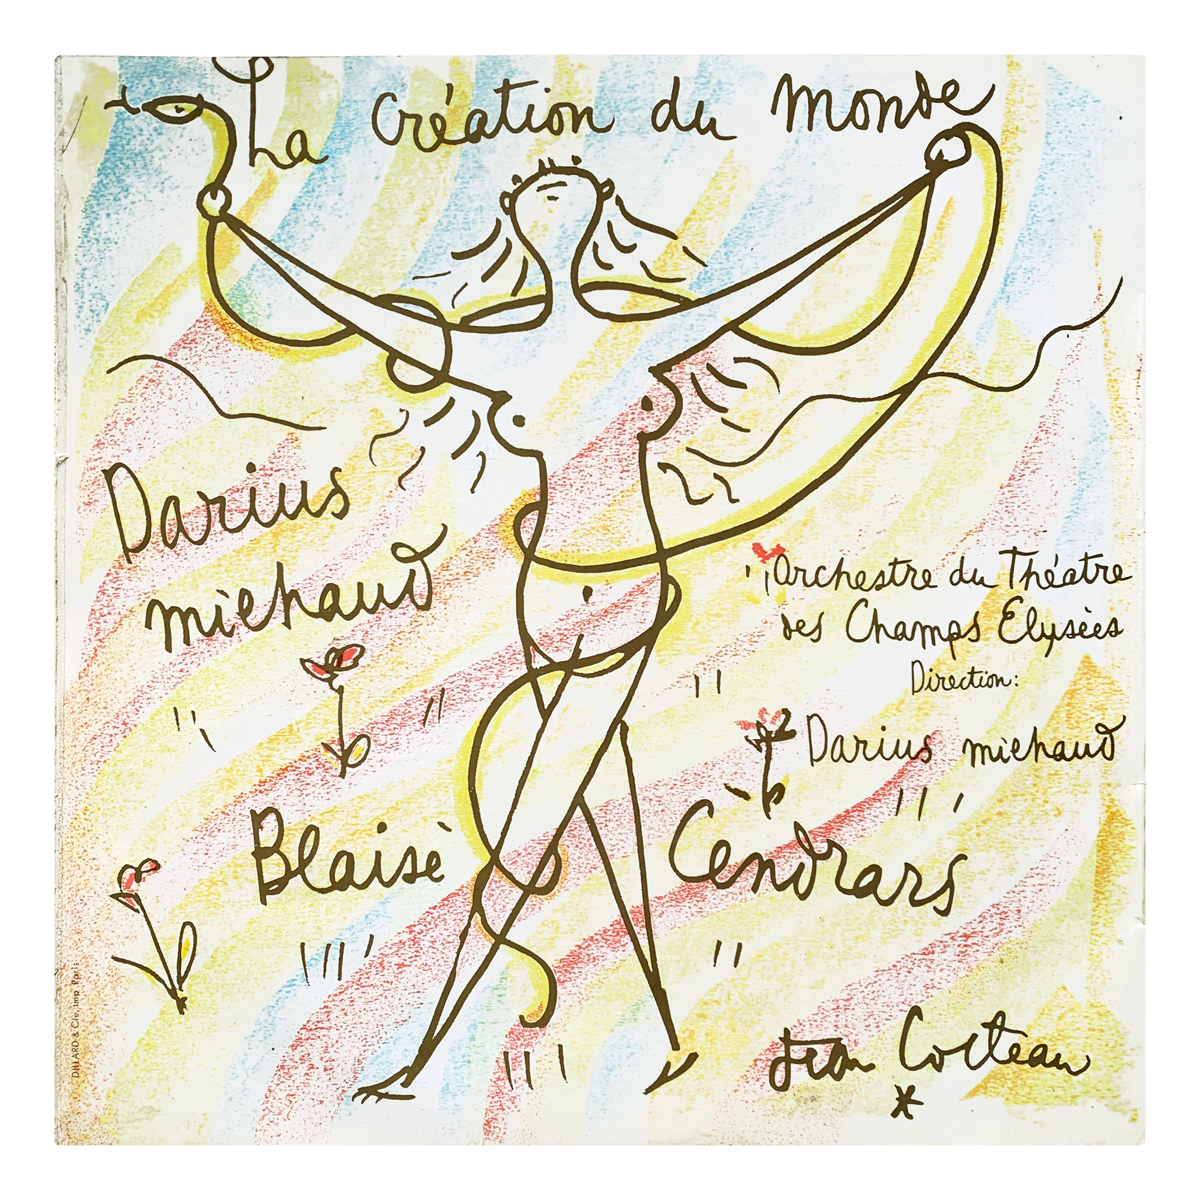 La création du monde
Darius
milhaud
Orchestre du Théâtre
des Champs Elysées
Direction:
Darius milhaud
Blaise Cendrars
Jean Cocteau
DILLARD & Cie. Imp. Paris